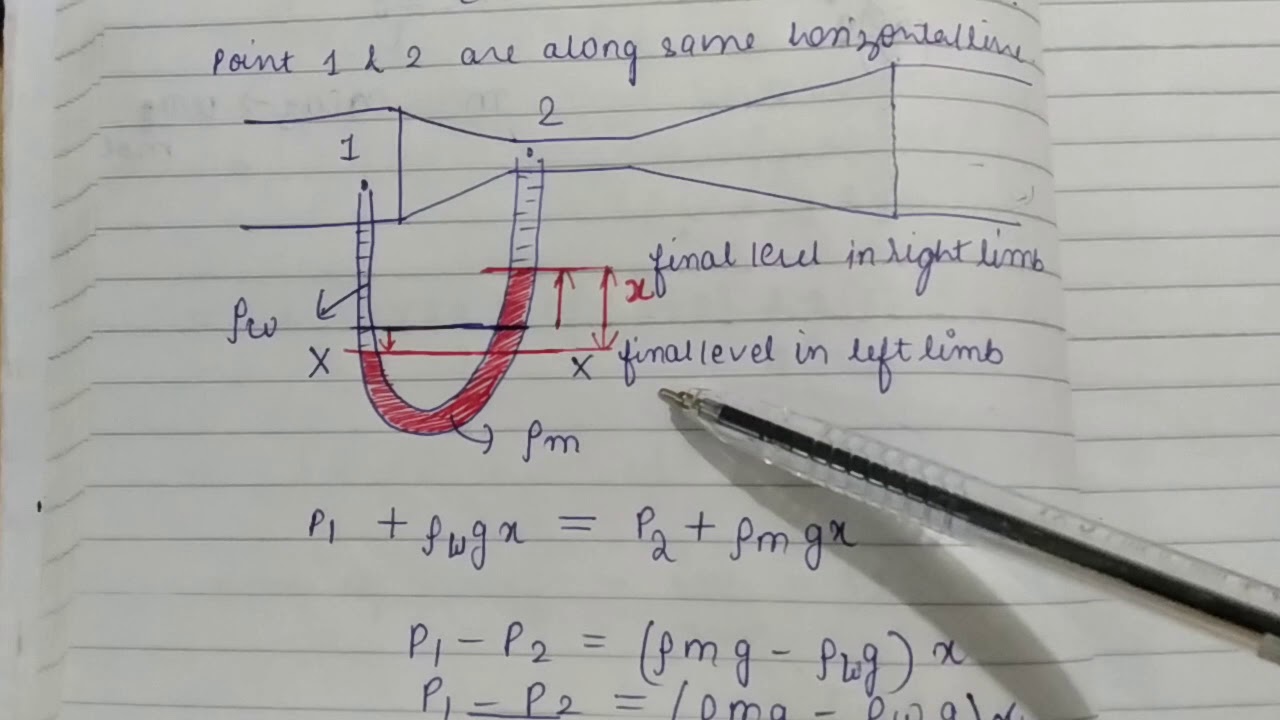 Point 1 & 2 are along same horizontal line
2
1
final level in right limb
x
ρw
X
X final level in left limb
ρm
P1 + ρwgx = P2 + ρmgx
P1 - P2 = (ρmg - ρwg) x
P1 - P2 = (ρmg - ρwg) x